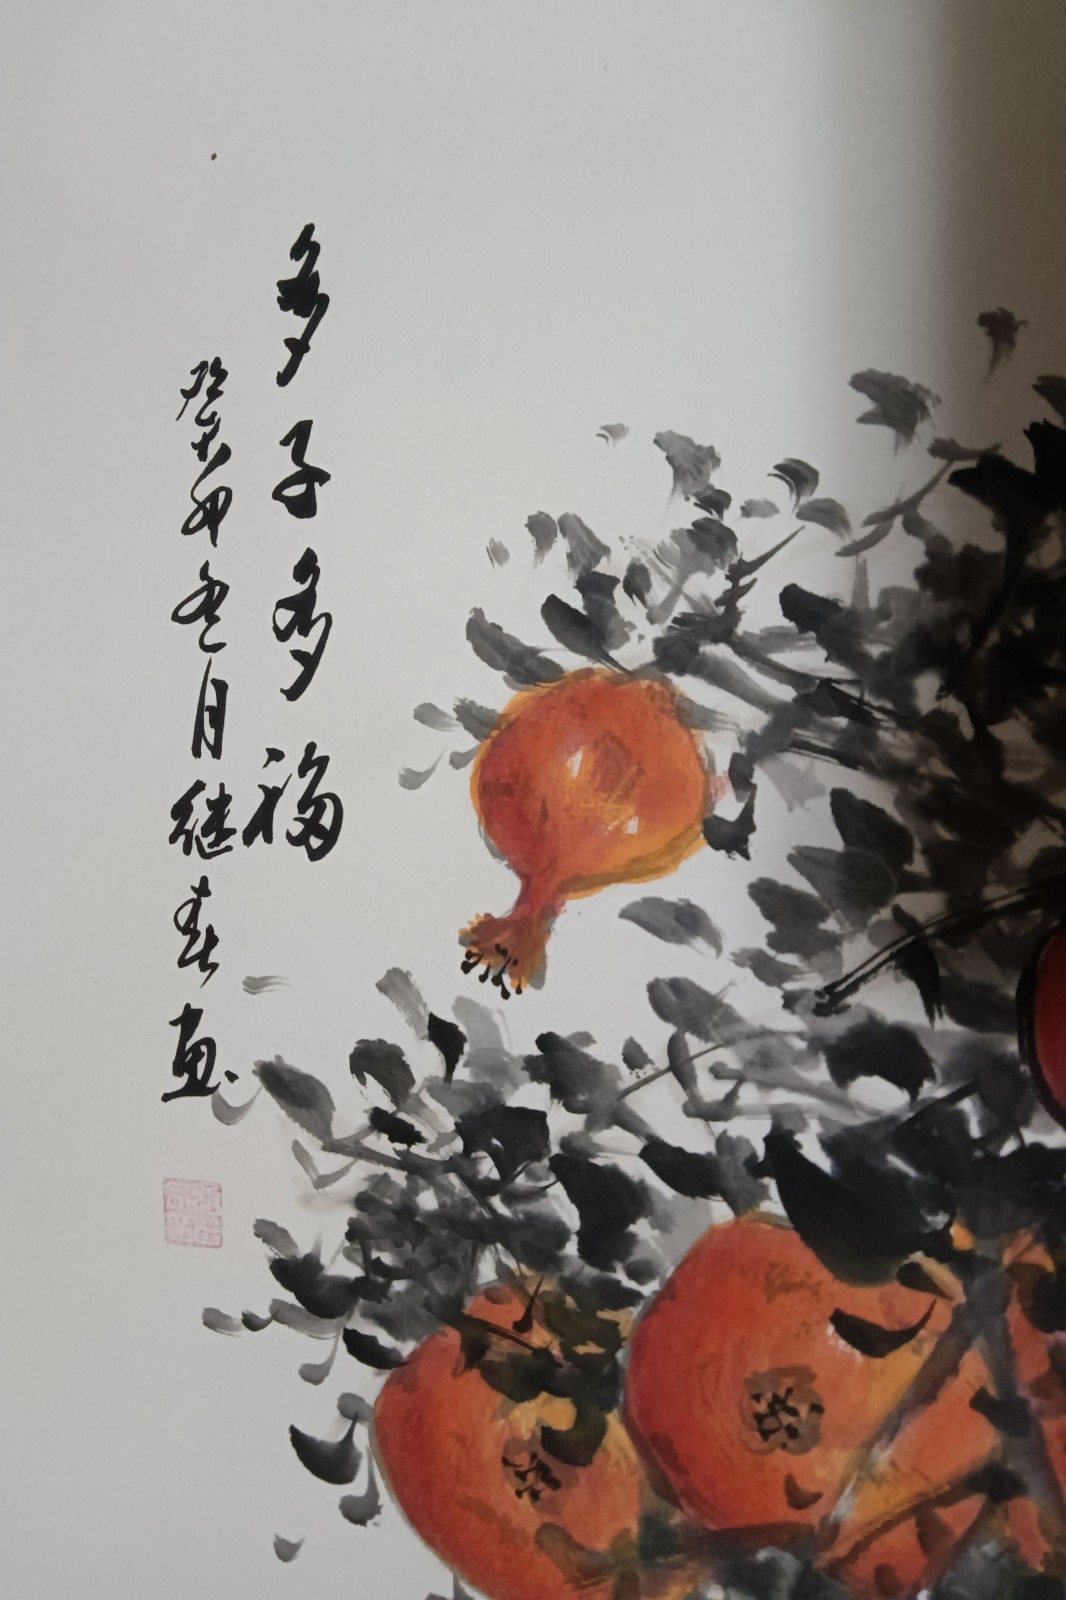 多子多福
癸卯冬月继春画